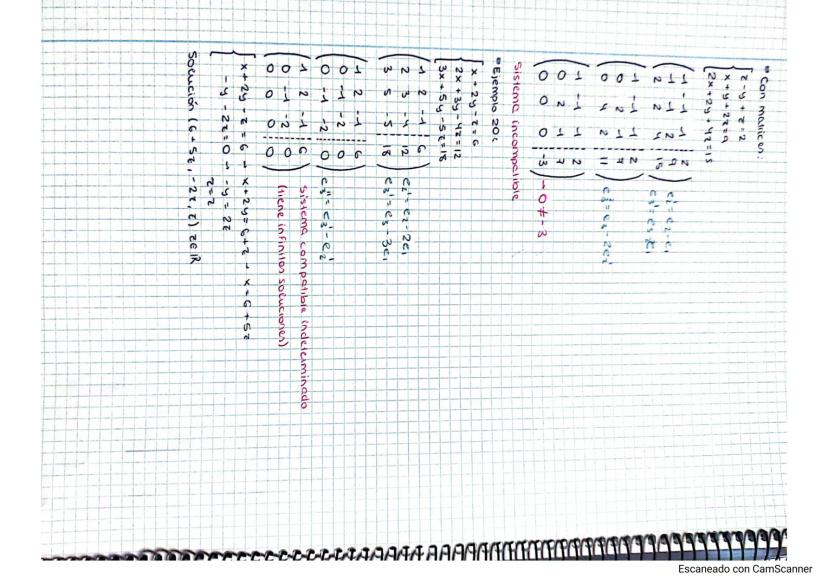 • Con matrices:
x - y + z = 2
x + y + 2z = 9
2x + 2y + 4z = 15
1 -1 1 2
1 1 2 9 e₂' = e₂ - e₁
2 2 4 15
1 -1 1 2
0 2 1 7
0 4 2 11 e₃'' = e₃' - 2e₂'
1 -1 1 2
0 2 1 7
0 0 0 -3 → 0 ≠ -3
Sistema incompatible
• Ejemplo 20:
x + 2y - z = 6
2x + 3y - 4z = 12
3x + 5y - 5z = 18
1 2 -1 6
2 3 -4 12 e₂' = e₂ - 2e₁
3 5 -5 18 e₃' = e₃ - 3e₁
1 2 -1 6
0 -1 -2 0
0 -1 -2 0 e₃'' = e₃' - e₂'
1 2 -1 6 Sistema compatible indeterminado
0 -1 -2 0 (tiene infinitas soluciones)
0 0 0 0
x + 2y - z = 6 → x + 2y = 6 + z → x = 6 + 5z
-y - 2z = 0 → -y = 2z
z = z
Solución (6 + 5z, -2z, z) z∈ℝ
Escaneado con CamScanner